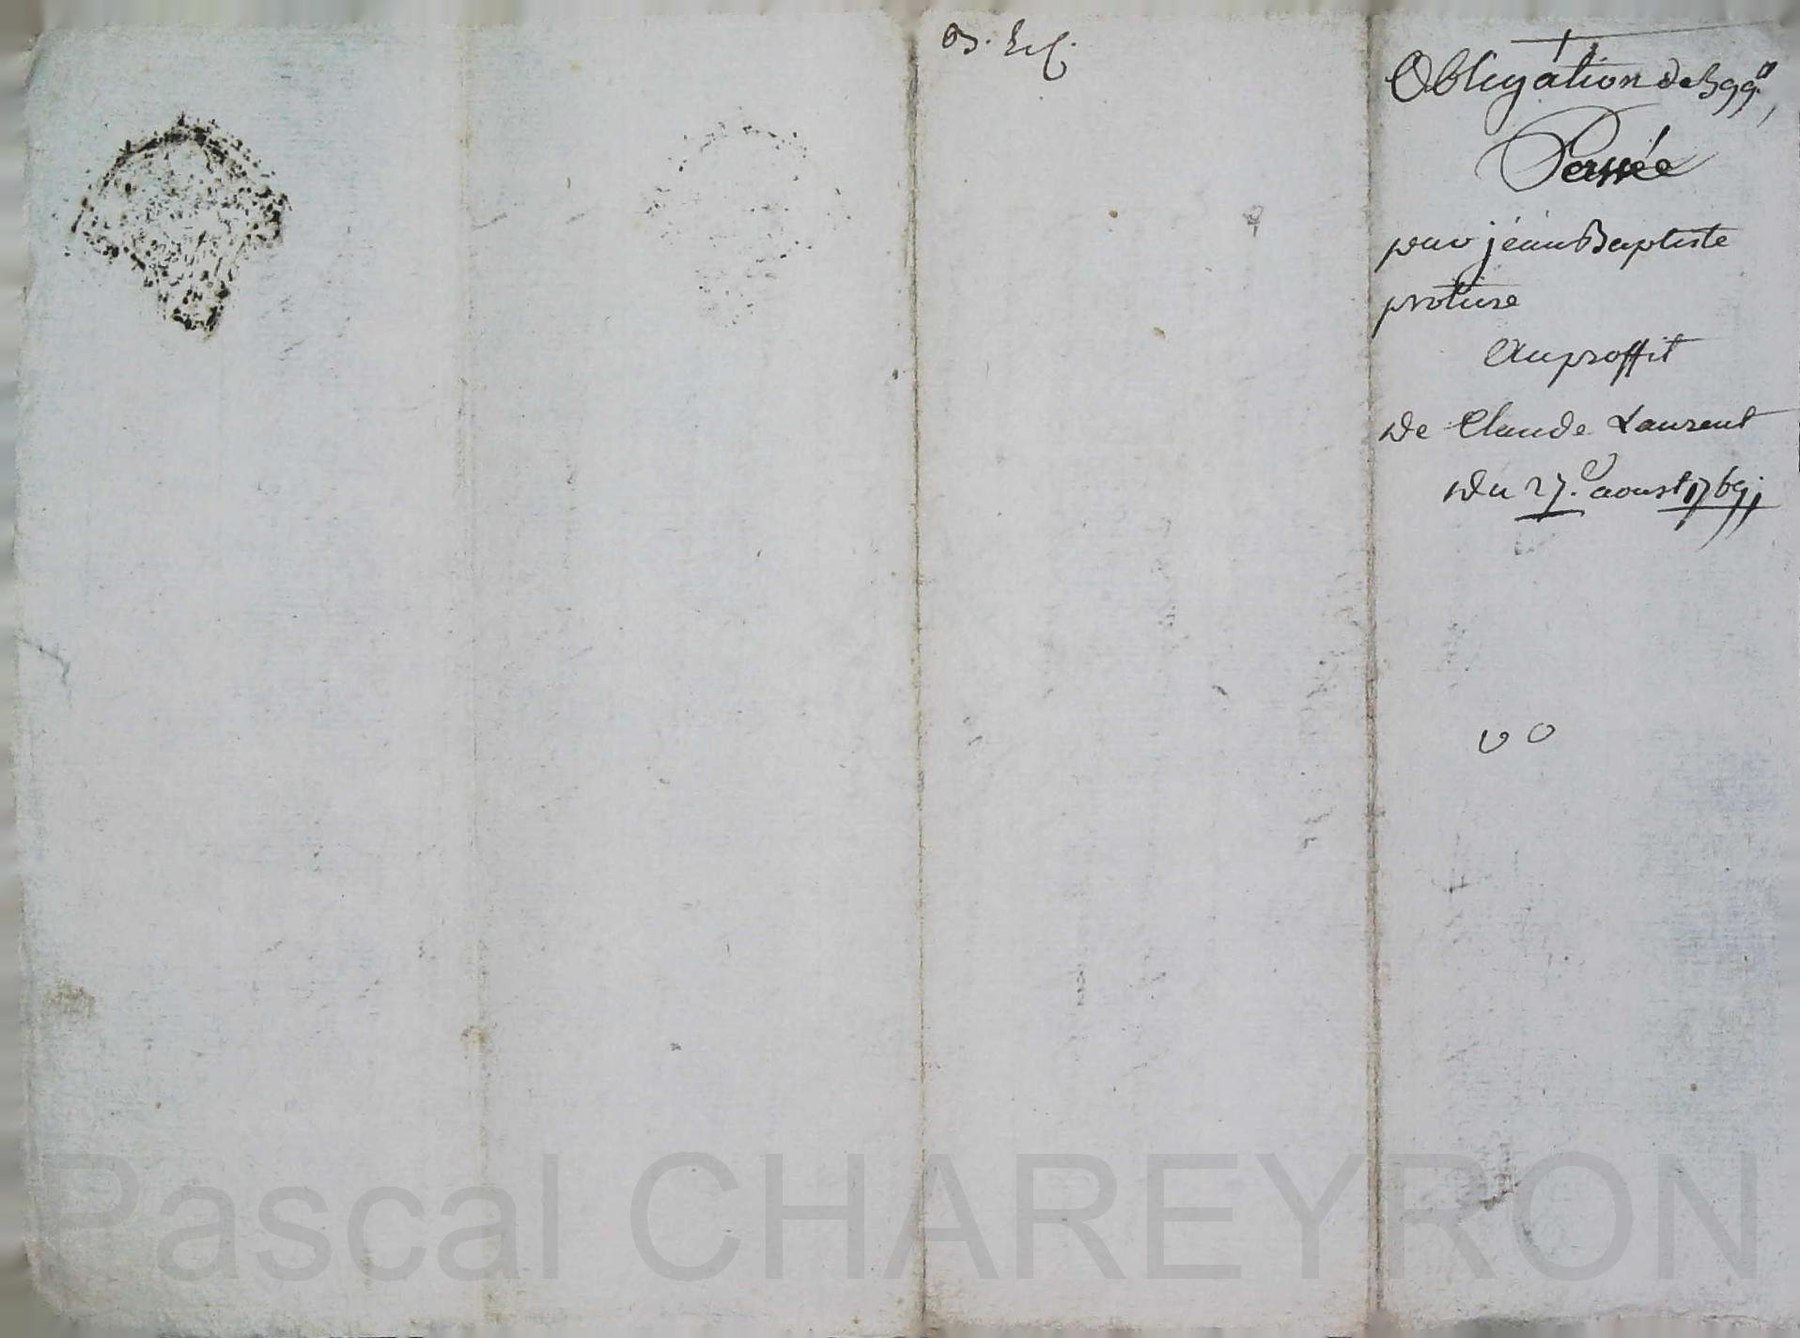 Obligation de 399ll
Passée
par jean Baptiste
proture
Au proffit
De Claude Laurent
Du 27.e aoust 1769
Pascal CHAREYRON